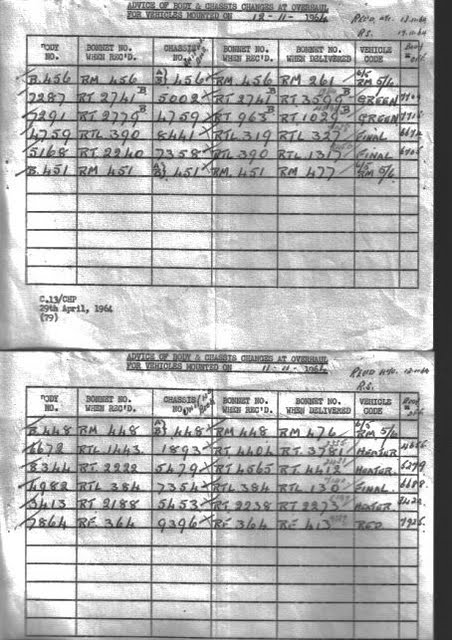 ADVICE OF BODY & CHASSIS CHANGES AT OVERHAUL
FOR VEHICLES MOUNTED ON 12-11-1964
BODY NO. BONNET NO. WHEN REC'D. CHASSIS NO. BONNET NO. WHEN REC'D. BONNET NO. WHEN DELIVERED VEHICLE CODE
B.456 RM 456 456 RM 456 RM 261 6/5 RM 5/6
7287 RT 2741 5002 RT 2741 RT 3599 GREEN
7291 RT 2779 4759 RT 963 RT 1029 GREEN
4759 RTL 390 8441 RTL 319 RTL FINAL
5168 RT 2240 7358 RTL 390 RTL 1317 FINAL
B.451 RM 451 451 RM 451 RM 477 6/5 RM 5/6
C.13/CHP
29th April, 1964
(79)
ADVICE OF BODY & CHASSIS CHANGES AT OVERHAUL
FOR VEHICLES MOUNTED ON 11-11-1964
BODY NO. BONNET NO. WHEN REC'D. CHASSIS NO. BONNET NO. WHEN REC'D. BONNET NO. WHEN DELIVERED VEHICLE CODE
B.448 RM 448 448 RM 448 RM 476 6/5 RM
6672 RTL 1443 1893 RT 4404 RT 3781 HEATER
8344 RT 2222 5479 RT 4565 RT 4412 HEATER
4982 RTL 384 7354 RTL 384 RTL FINAL
RT 2188 5453 RT 2238 RT 2273 HEATER
7864 RF 364 9396 RF 364 RF 413 RED